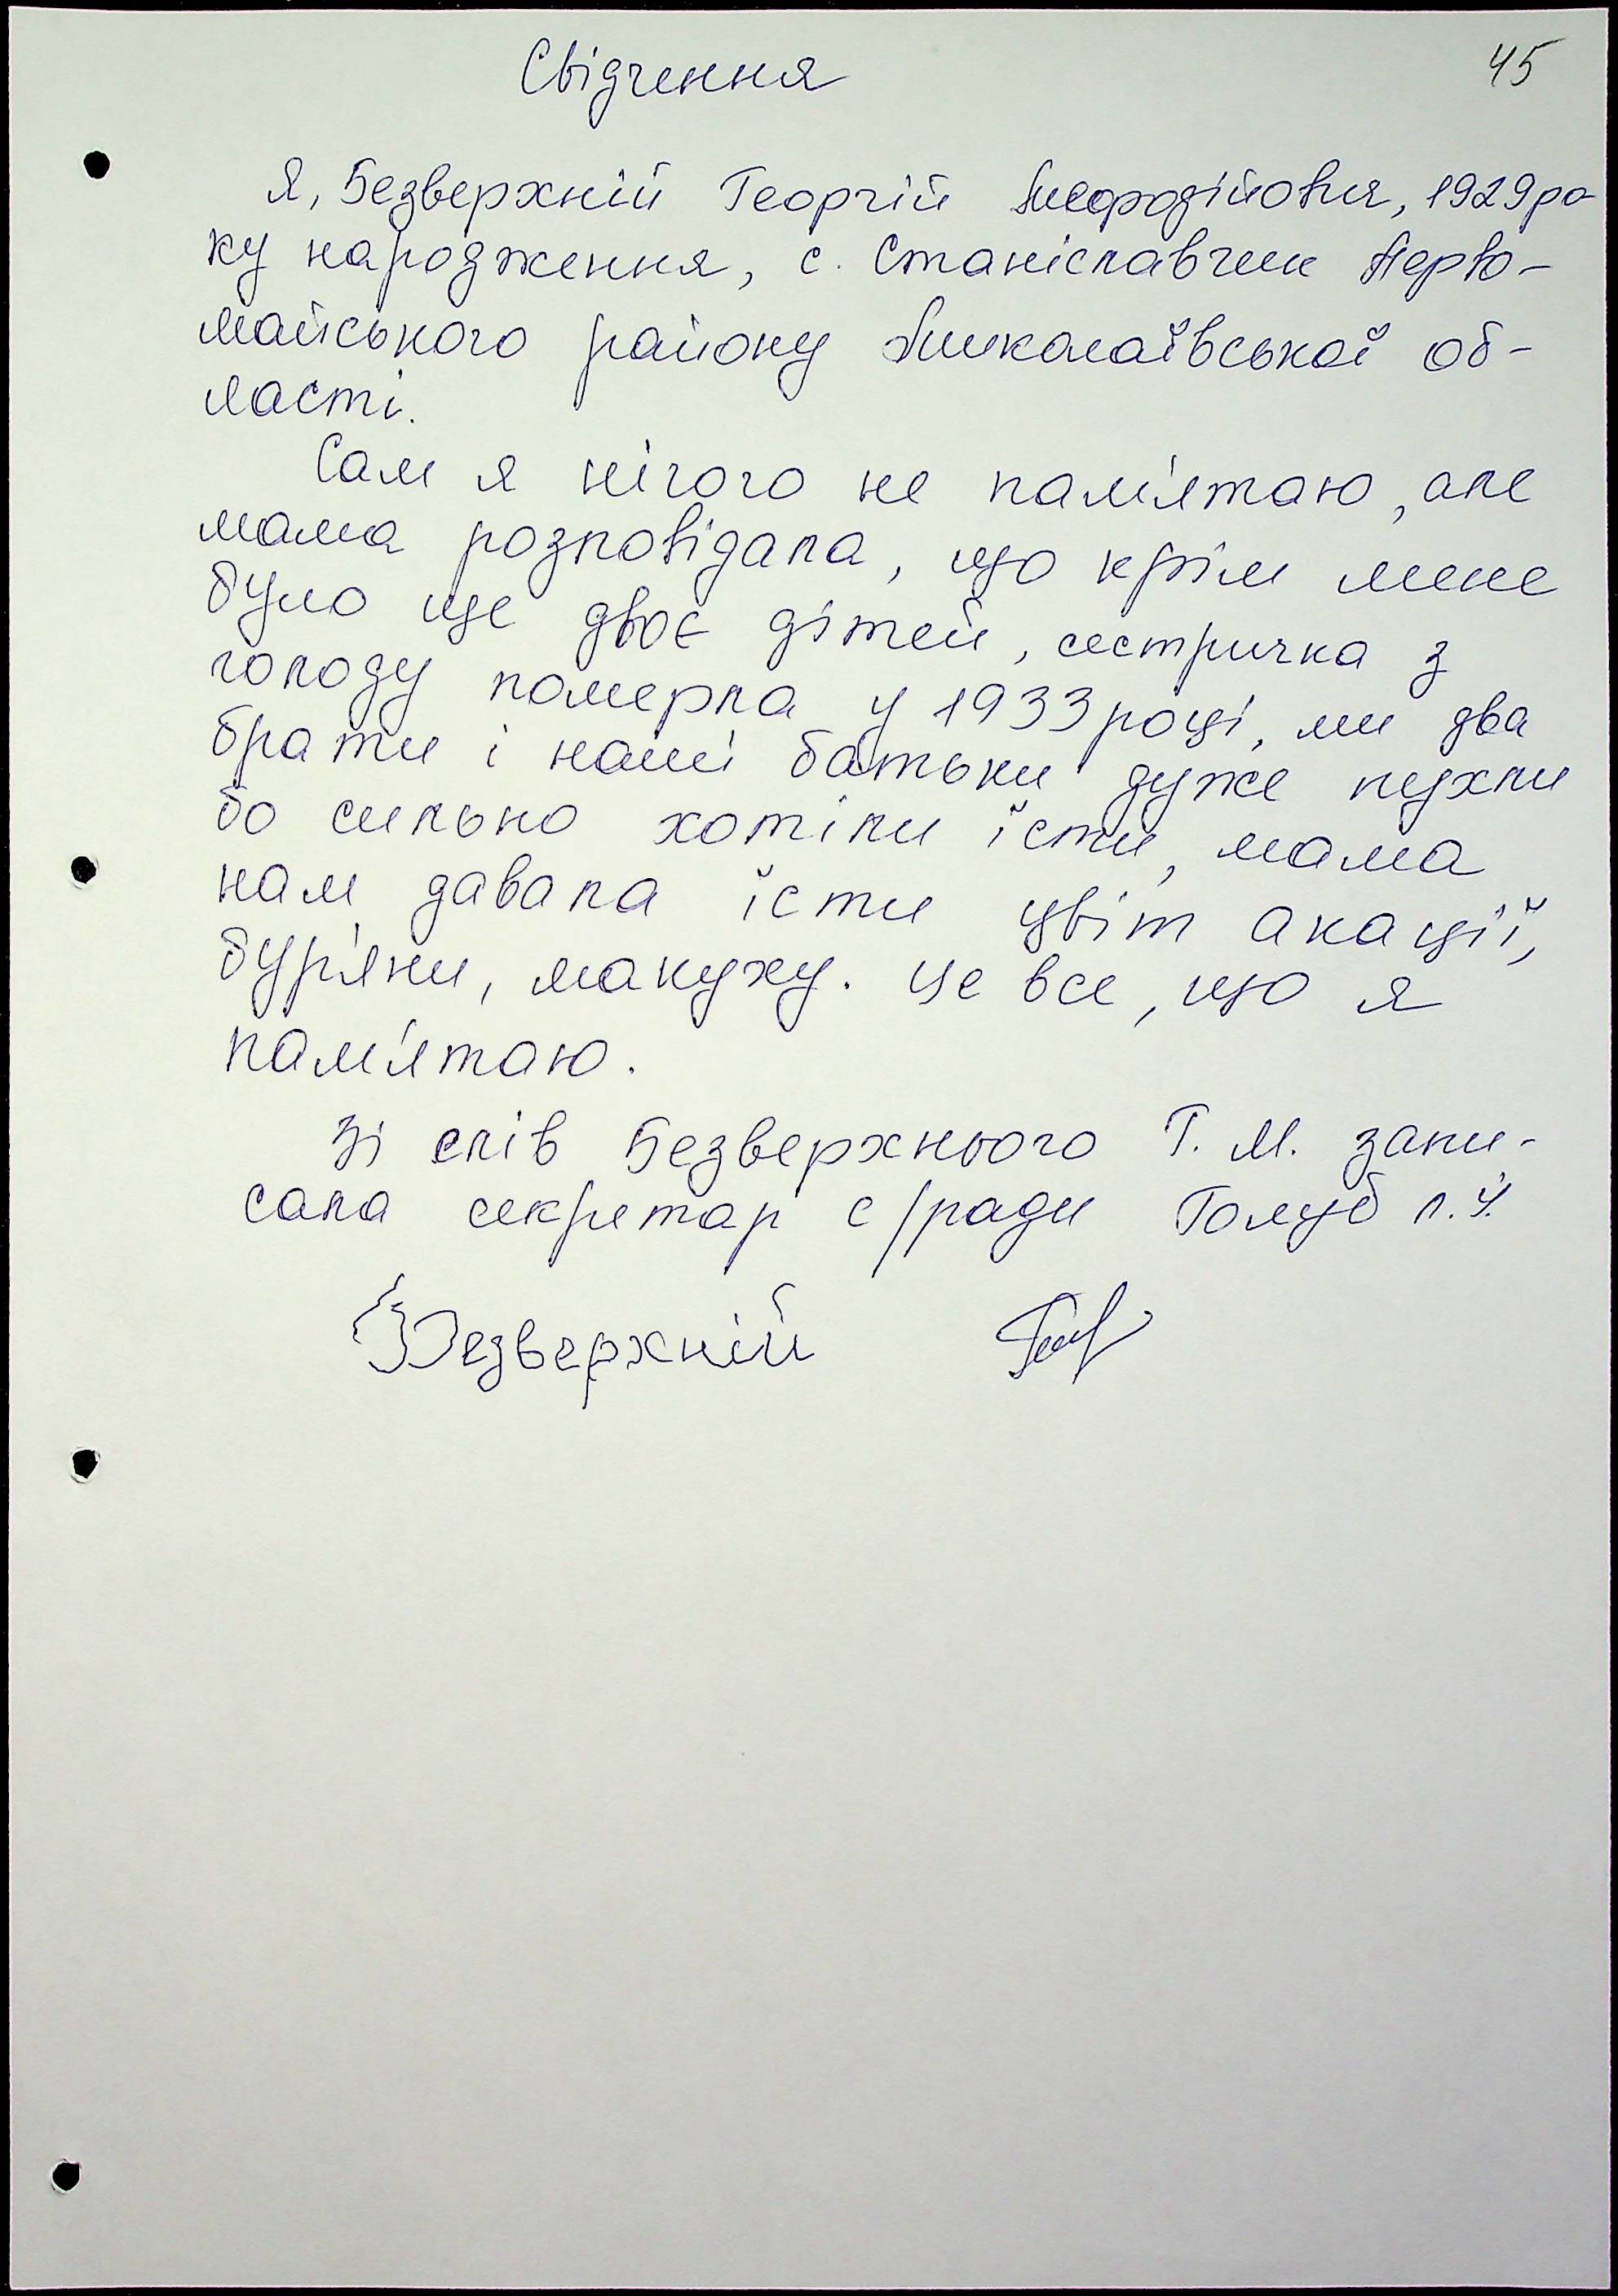 45
Свідчення
Я, Безверхній Георгій Мефодійович, 1929 ро-
ку народження, с. Станіславчик Перво-
майського району Миколаївської об-
ласті.
Сам я нічого не пам'ятаю, але
мама розповідала, що крім мене
було ще двоє дітей, сестричка з
голоду померла у 1933 році, ми два
брати і наші батьки дуже пухли
бо сильно хотіли їсти, мама
нам давала їсти цвіт акації,
бур'яни, макуху. Це все, що я
пам'ятаю.
Зі слів Безверхнього Г. М. запи-
сала секретар с/ради Голуб Л. Й.
Безверхній